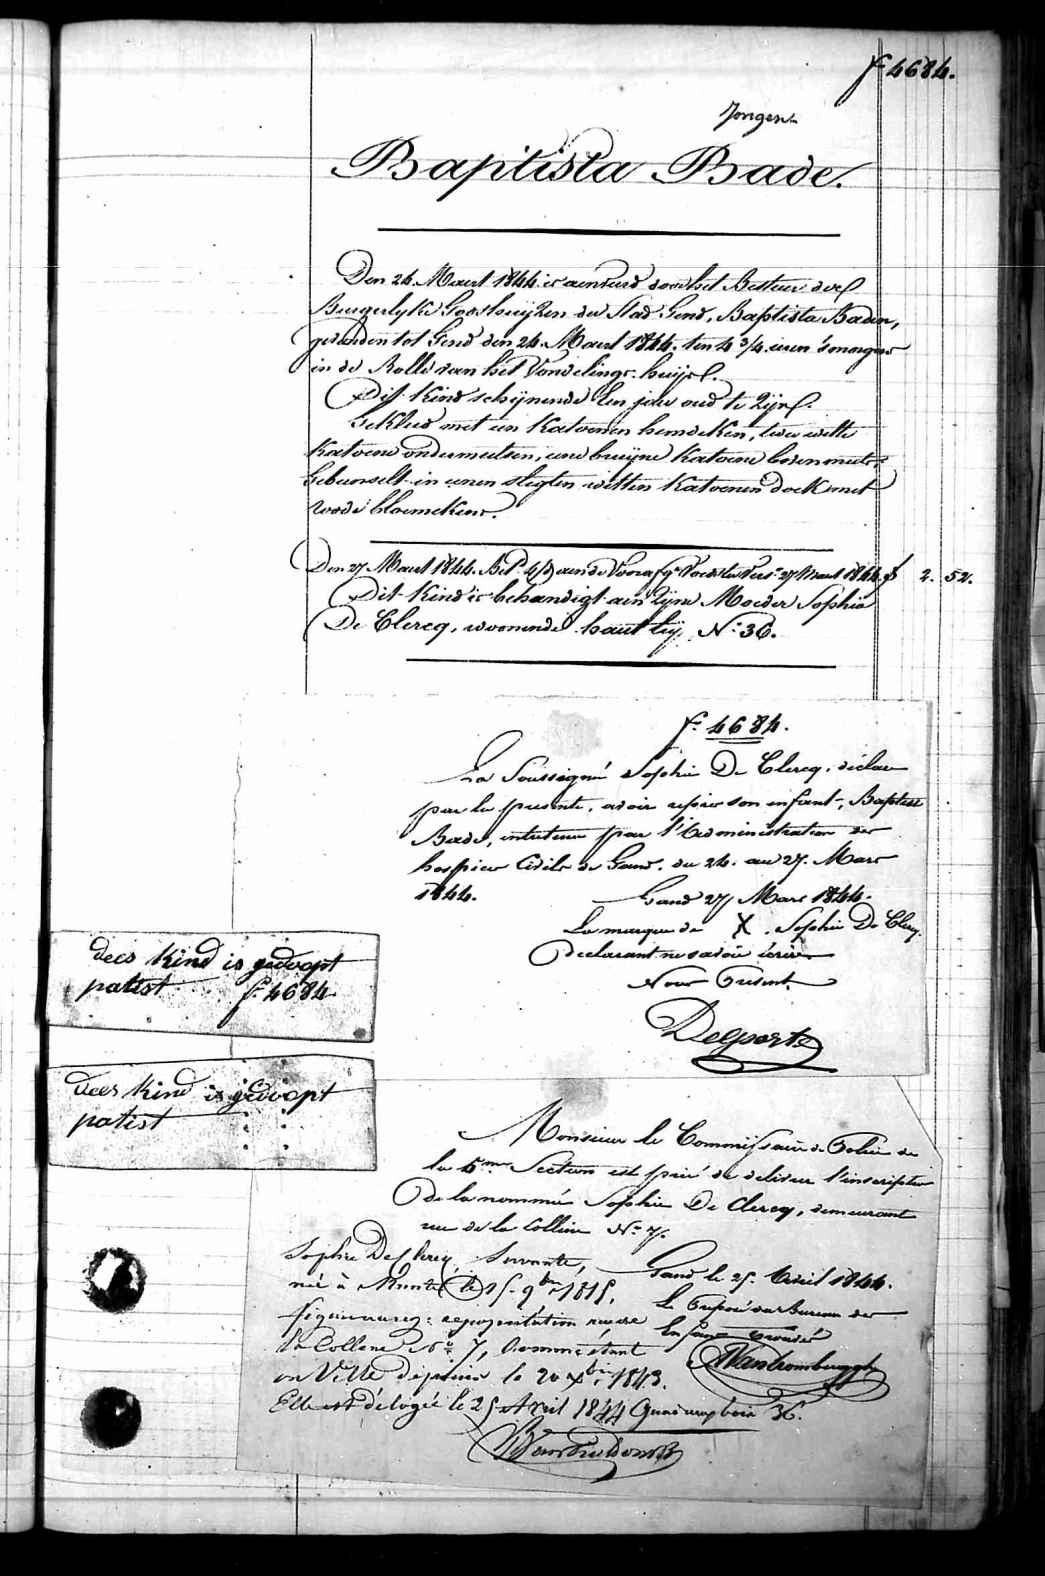 f° 4684.
Jongen
Baptista Bade.
Den 24 Maart 1844 is aenveerd door het Bestuer der
Burgerlyke Godshuyzen der Stad Gend, Baptista Baden,
gevonden tot Gend den 24 Maart 1844. ten 4 3/4 uren 's morgens
in de Rolle van het Vondelings-huys.
Dit kind schynende Een jaer oud te Zyn.
Gekleed met een Katoenen hemdeken, twee witte
Katoene ondermutsen, eene bruyne Katoene bovenmuts
Gebunselt in eenen slegten witten Katoenen doek met
roode bloemekens.
Den 27 Maart 1844. Bet. aen de Voedster 27 Maart 1844 f 2. 52.
Dit Kind is behandigt aen Zyne Moeder Sophia
De Clercq, woonende houtleÿ, N° 36.
f° 4684.
La Soussigné Sophie De Clercq, déclare
par la presente, avoir repris son enfant, Baptiste
Bade, entretenu par l'Administration des
hospices Civils de Gand, du 24. au 27. Mars
1844.
Gand 27 Mars 1844.
La marque de X Sophie De Clercq
déclarant ne savoir écrire
Nous Présent
Delporte
dees kind is gedoopt
patist f° 4684
dees kind is gedoopt
patist
Monsieur le Commissaire de Police de
la 5me Section est prié de delivrer l'inscription
de la nommée Sophie De Clercq, demeurant
rue de la Colline N° 7.
Gand le 25 Avril 1844.
Le Préposé au Bureau des
Enfans trouvés
Sophie De Clercq, Servante,
née à Munte le 15 9bre 1815,
la Colline N° 7, comme étant
en Ville depuis le 20 Xbre 1843.
Elle est délogée le 25 Avril 1844 Quai aux bois 36.